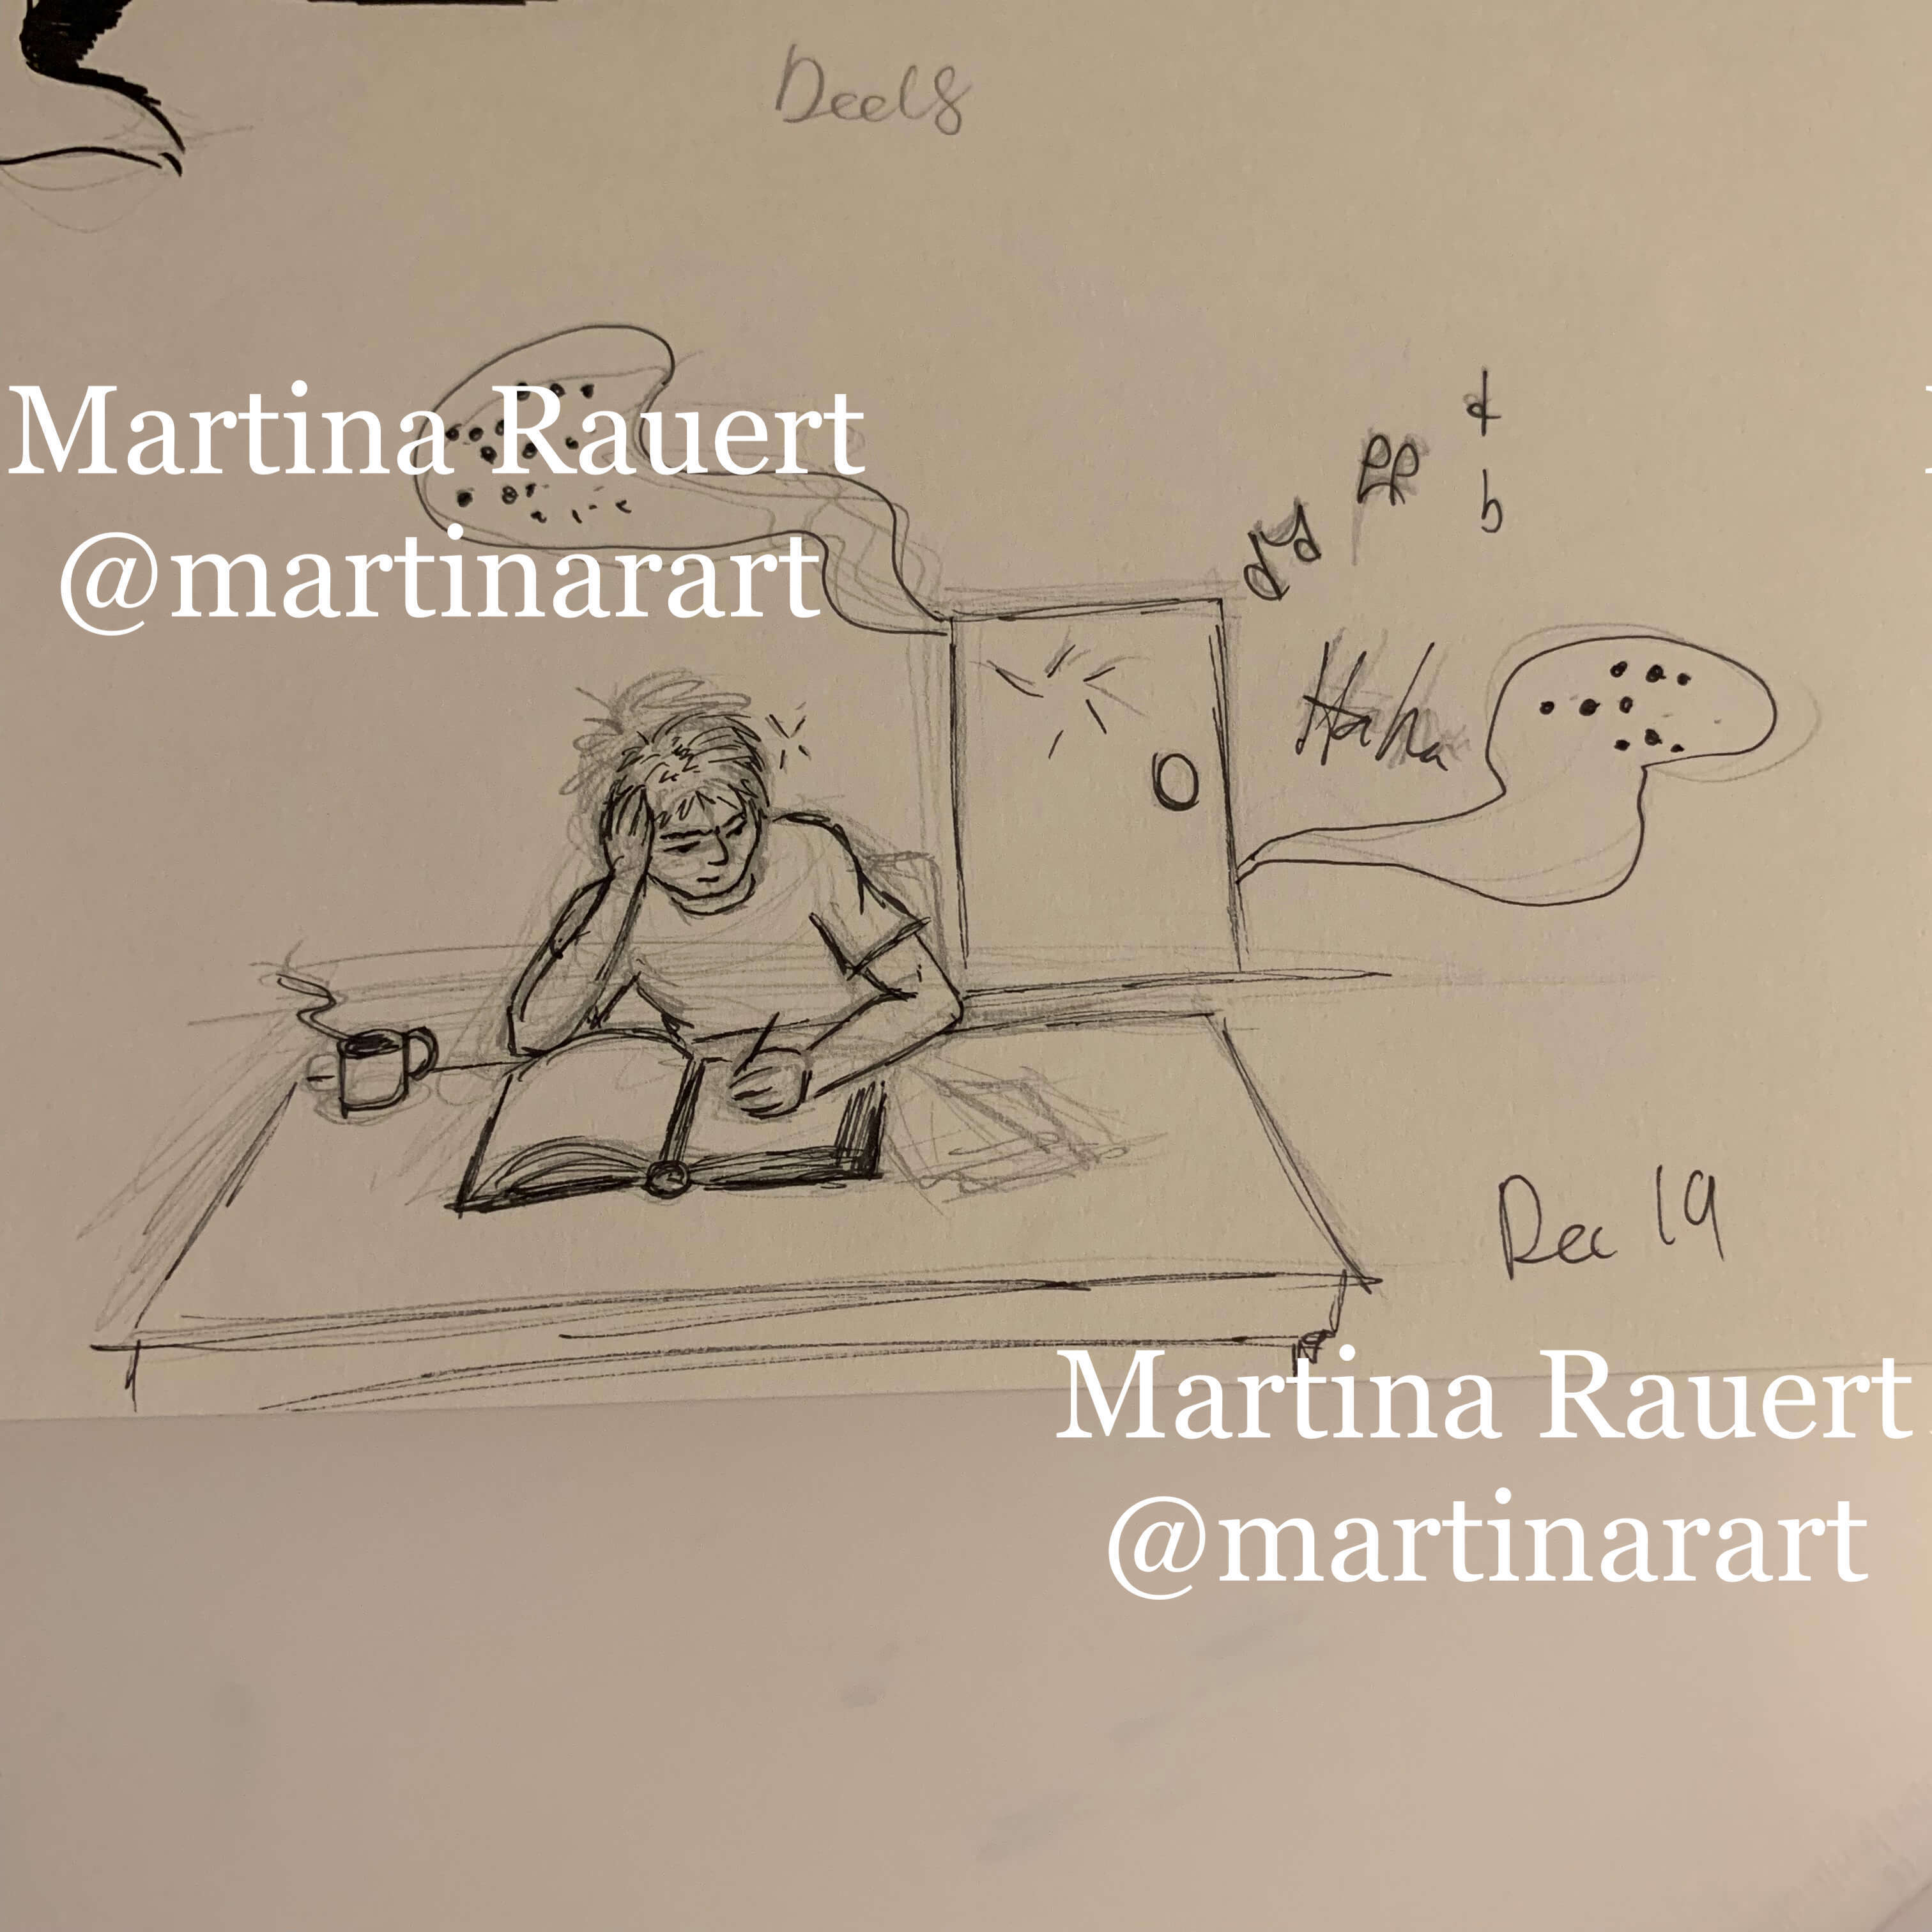 Dec 18
Martina Rauert
@martinarart
Haha
Dec 19
Martina Rauert
@martinarart